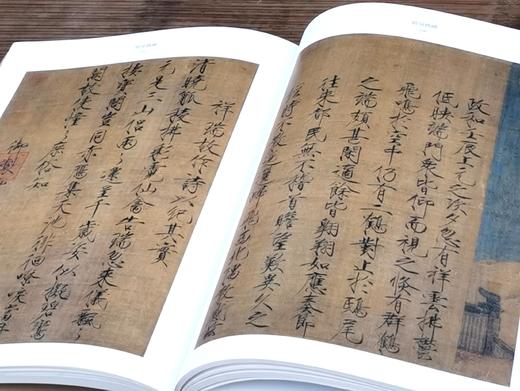 政和壬辰上元之次夕忽有祥雲拂鬱
低映端門眾皆仰而視之倏有群鶴
飛鳴於空中仍有二鶴對止於鴟尾
之端頗甚閑適餘皆翱翔如應奏節
往來都民無不稽首瞻望歎異久之
祥瑞故作詩以紀其實
清曉觚稜拂彩霓仙禽告瑞忽來儀飄々
元是三山侶兩々還呈千歲姿似擬碧鸞
棲寶閣豈同赤雁集天池徘徊嘹唳當丹
闕故使憧々庶俗知
御製